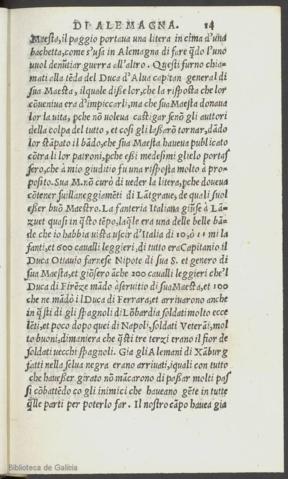 DI ALEMAGNA. 14
Maesta, il paggio portava una litera in cima d'una
bachetta, come s'usa in Alemagna di fare q̃do l'uno
vuol denũtiar guerra all'altro. Questi furno chia
mati alla tẽda del Duca d'Alua capitan general di
sua Maesta, ilquale diße lor, che la risposta che lor
cõueniua era d'impiccarli, ma che sua Maestà donaua
lor la uita, pche nõ voleua castigar senõ gli auttori
della colpa del tutto, et cosi gli laßarõ tornar, dãdo
lor stãpato il bãdo, che sua Maestà haueua publicato
cõtra li lor patroni, pche eßi medesimi glielo portaſ
ſero, che à mio giuditio fu una risposta molto à pro-
posito. Sua M. nõ curò di ueder la litera, pche doueua
cõtener suillaneggiamẽti di Lãtgraue, de quali suol
eßer buõ Maestro. La fanteria Italiana giũse à Lã-
zuet quasi in q̃sto tẽpo, laq̃le era una delle belle bã-
de che io habbia uista uscir d'Italia di 10, ò 11 mila
fanti, et 600 caualli leggieri, di tutto era Capitanio il
Duca Ottauio farnese Nipote di sua S. et genero di
sua Maesta, et giũsero ãche 200 caualli leggieri che'l
Duca di Firẽze mãdò à seruitio di sua Maesta, et 100
che ne mãdò il Duca di Ferrara, et arriuarono anche
in q̃sti dì gli spagnoli di Lõbardia soldati molto ecce
lẽti, et poco dopo quei di Napoli, soldati Veterãi, mol
to buoni, di maniera che q̃sti tre terzi erano il fior de
soldati uecchi spagnoli. Gia gli Alemani di Xãburg
fatti nella selua negra erano arriuati, iquali con tutto
che haueßer girato nõ mãcarono di poßar molti paſ
si cõbattẽdo co gli inimici che haueano gẽte in tutte
q̃lle parti per poterlo far. Il nostro cãpo hauea gia
Biblioteca de Galicia